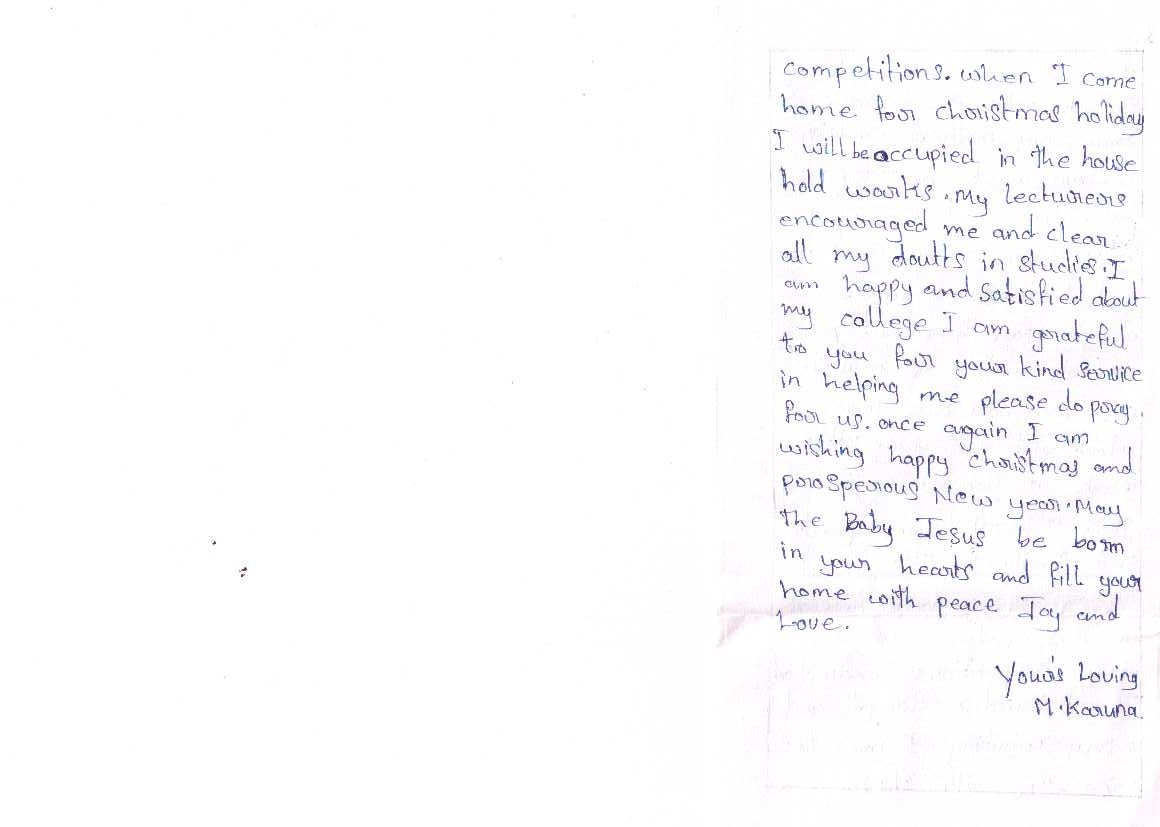 competitions. when I come
home for christmas holiday
I will be occupied in the house
hold works. my lecturers
encouraged me and clear
all my doutts in studies. I
am happy and satisfied about
my college I am grateful
to you for your kind service
in helping me please do pray.
for us. once again I am
wishing happy christmas and
prosperous New year. May
the Baby Jesus be born
in your hearts and fill your
home with peace Joy and
Love.
Your's Loving
M. Karuna.